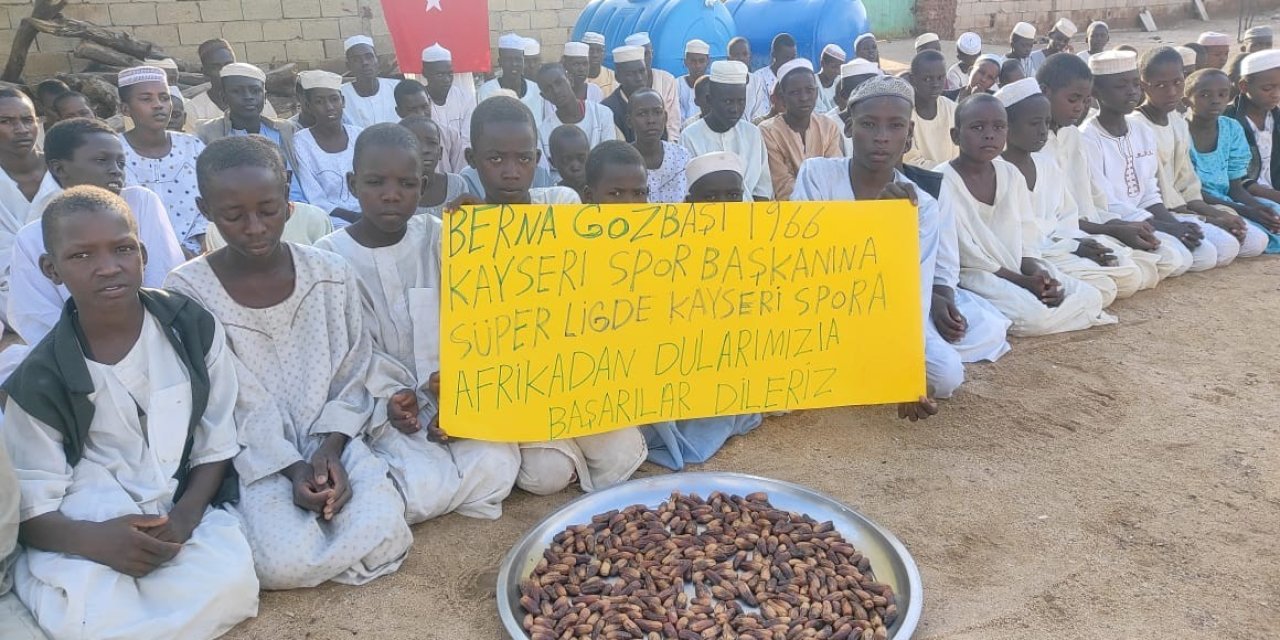 BERNA GOZBAŞI 1966
KAYSERI SPOR BAŞKANINA
SÜPER LİGDE KAYSERİ SPORA
AFRIKADAN DULARIMIZLA
BAŞARILAR DİLERİZ